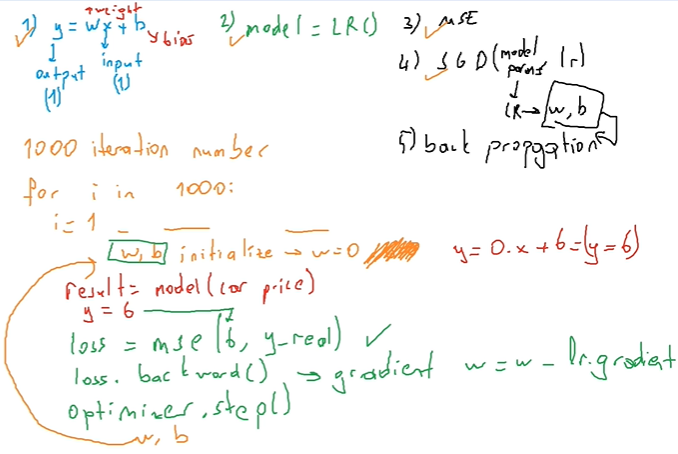 1) y = wx + b
weight
bias
output
(1)
input
(1)
2) model = LR()
3) MSE
4) SGD(model params, lr)
LR → w, b
5) back propgation
1000 iteration number
for i in 1000:
i = 1
w, b initialize → w=0
y = 0.x + 6 = (y = 6)
result = model(car price)
y = 6
loss = mse(6, y_real) ✓
loss.backward() → gradient w = w - lr.gradient
optimizer.step()
w, b